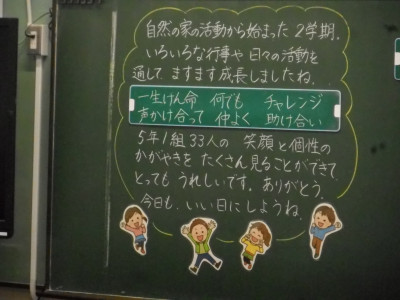 自然の家の活動から始まった 2学期。
いろいろな行事や 日々の活動を
通して、ますます成長しましたね。
一生けん命 何でも チャレンジ
声かけ合って 仲よく 助け合い
5年1組 33人の 笑顔と個性の
かがやきを たくさん見ることができて
とっても うれしいです。ありがとう。
今日も、いい日にしようね。